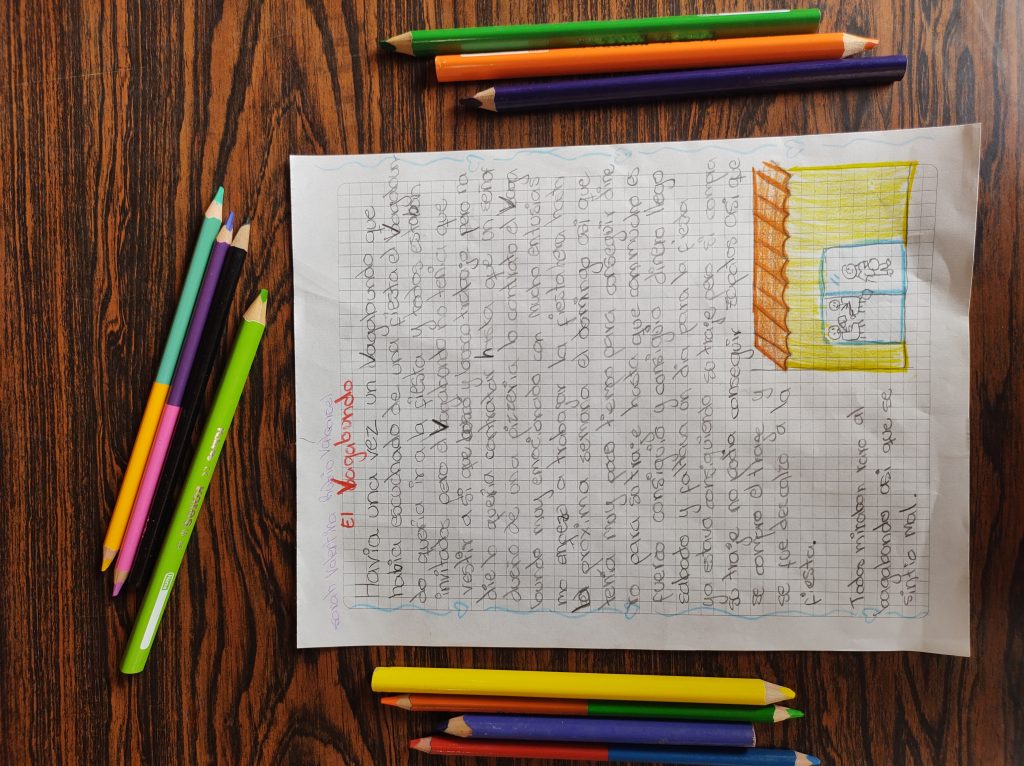 El Vagabundo
Havia una vez un Vagabundo que
habia escuchado de una fiesta el Vagabun
do queria ir a la fiesta y todos estaban
invitados pero el Vagabundo no tenia que
vestir a si que busco y busco trabajo pero na
die lo queria contratar hasta que un señor
dueño de una pizzeria lo contrato el Vaga
vundo muy emocionado con mucho entusias
mo enpezo a trabagar la fiesta era hasta
la proxima semana el domingo asi que
tenia muy poco tiempo para conseguir dine
ro para su traje hasta que es
fuerzo consiguio y consiguio dinero llego
sabado y faltava un dia para la fiesta
ya estava consiguiendo su traje pero si compra
su traje no podia conseguir zapatos asi que
se compro el traje y
se fue descalzo a la
fiesta.
Todos miraban raro al
vagabundo asi que se
sintio mal.